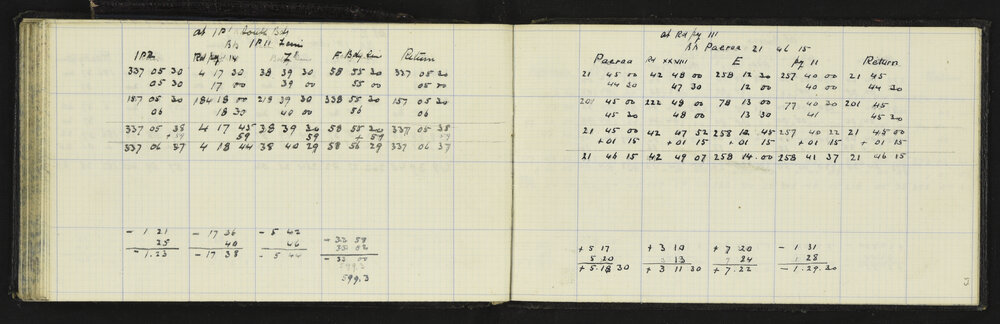 at IP1 South Bdy
Brg IPII Zero
IP2 Z E Bdy Return
337 05 30 4 17 30 38 39 30 58 55 30 337 05 30
05 30 17 00 39 00 55 00 05 00
157 05 30 184 18 00 218 39 30 238 55 30 157 05 30
06 18 30 40 00 56 06
337 05 38 4 17 45 38 39 30 58 55 30 337 05 38
+ 59 59 59 + 59 59
337 06 37 4 18 44 38 40 29 58 56 29 337 06 37
- 1 21 - 17 36 - 5 42 - 32 59
25 40 46 35 02
- 1.23 - 17 38 - 5 44 - 33 00
599.3
599.3
at Rd pg III
Brg Paeroa 21 46 15
Paeroa Rd XXVIII E pg II Return
21 45 00 42 48 00 258 12 30 257 40 00 21 45
44 30 47 30 12 00 40 00 44 30
201 45 00 222 48 00 78 13 00 77 40 30 201 45
45 30 48 00 13 30 41 45 30
21 45 00 42 47 52 258 12 45 257 40 22 21 45 00
+ 01 15 + 01 15 + 01 15 + 01 15 + 01 15
21 46 15 42 49 07 258 14.00 258 41 37 21 46 15
+ 5 17 + 3 10 + 7 20 - 1 31
5 20 3 13 7 24 1 28
+ 5.18 30 + 3 11 30 + 7.22 - 1.29.30